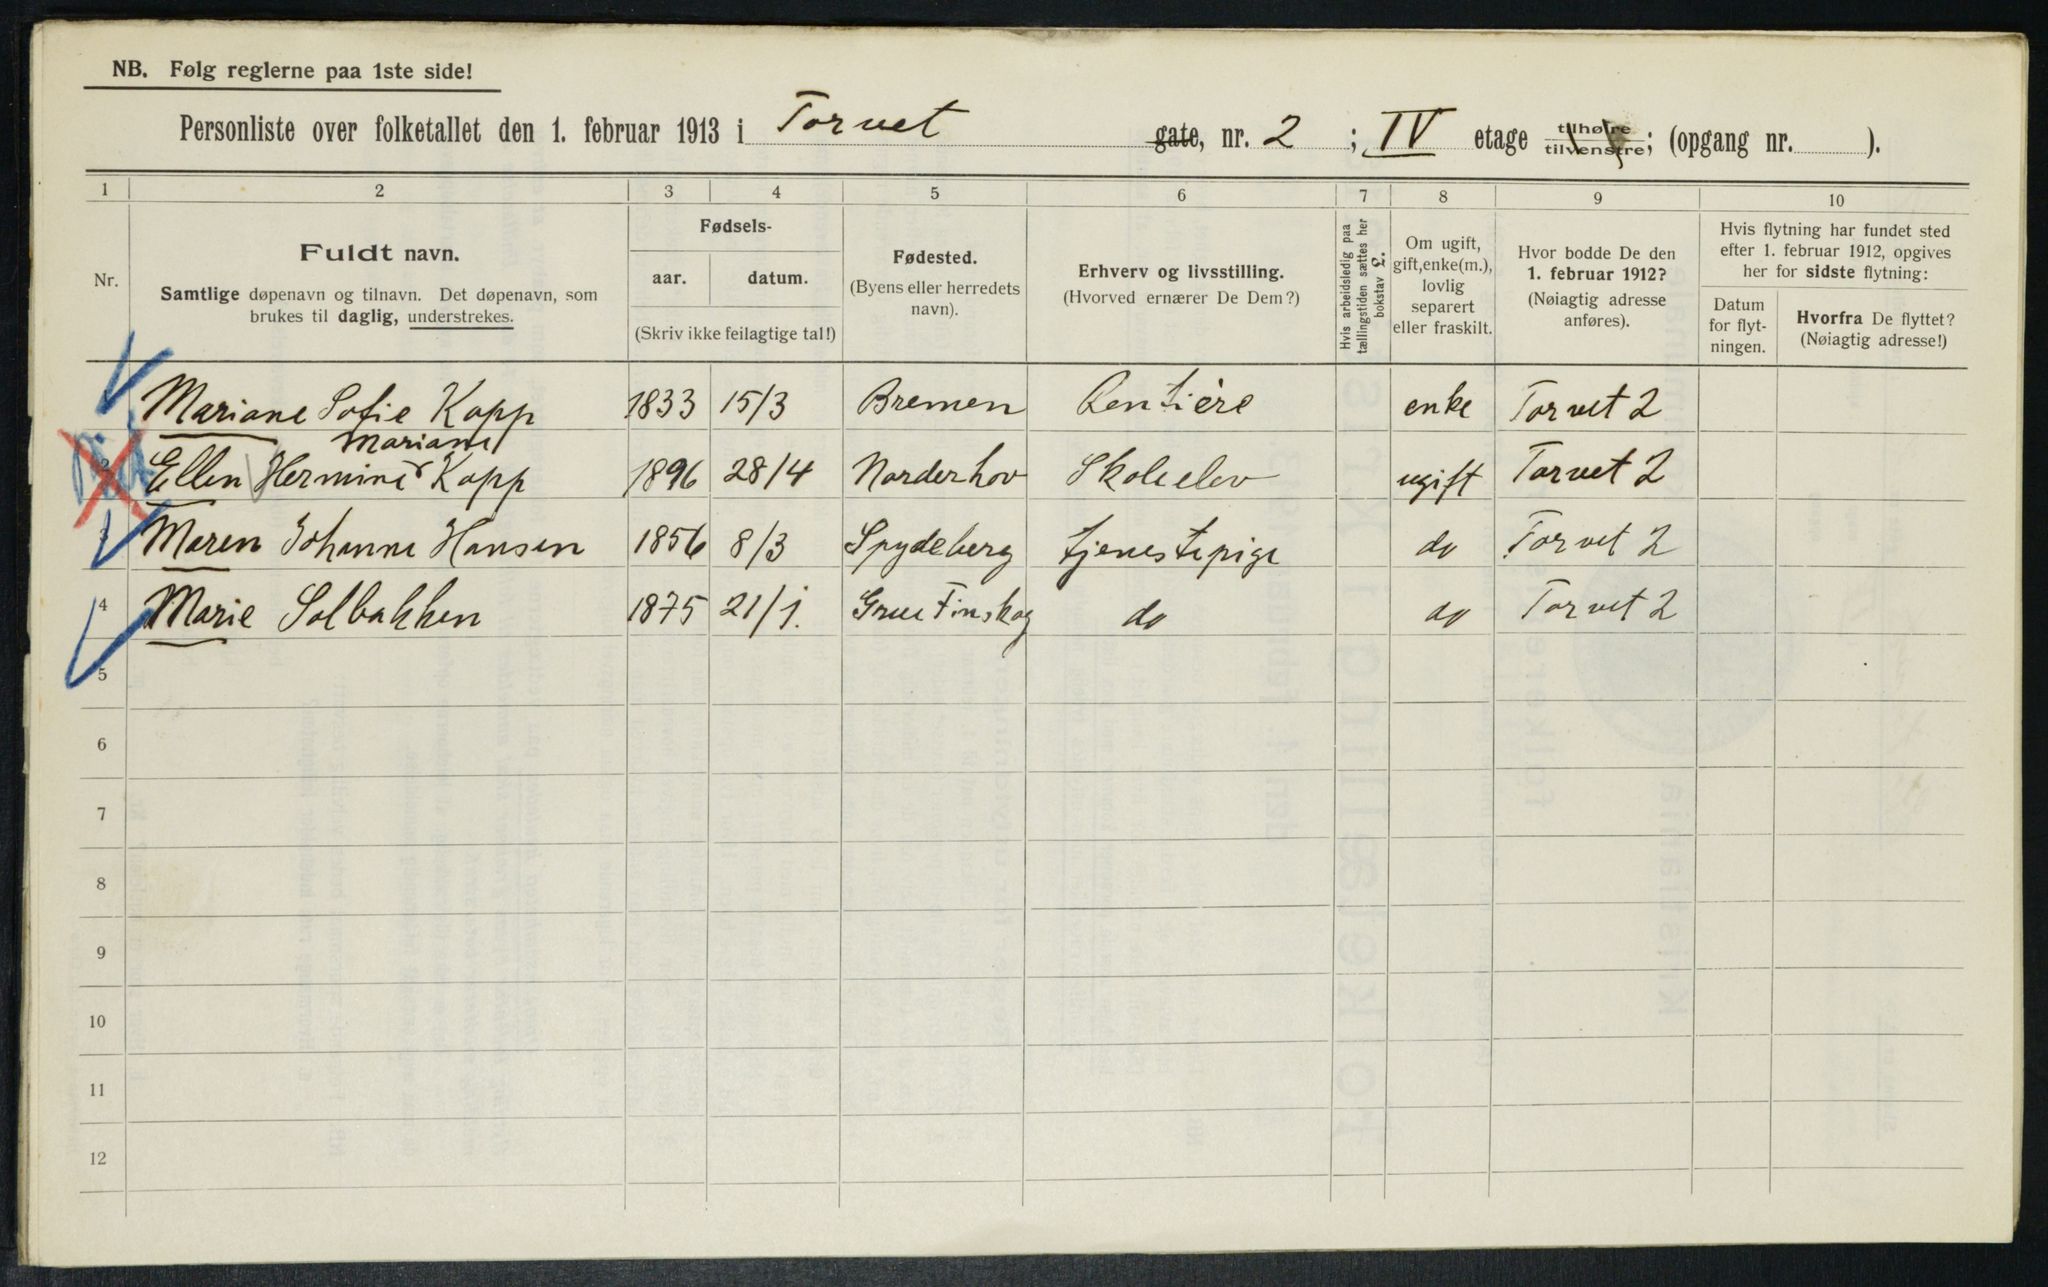 NB. Følg reglerne paa 1ste side!
Personliste over folketallet den 1. februar 1913 i Torvet gate, nr. 2 ; IV etage tilhøire tilvenstre; (opgang nr. ).
1 2 3 4 5 6 7 8 9 10
Nr.
Fuldt navn.
Samtlige døpenavn og tilnavn. Det døpenavn, som
brukes til daglig, understrekes.
Fødsels-
aar. datum.
(Skriv ikke feilagtige tal!)
Fødested.
(Byens eller herredets
navn).
Erhverv og livsstilling.
(Hvorved ernærer De Dem?)
Hvis arbeidsledig paa
tællingstiden sættes her
bokstav L.
Om ugift,
gift, enke(m.),
lovlig
separert
eller fraskilt.
Hvor bodde De den
1. februar 1912?
(Nøiagtig adresse
anføres).
Hvis flytning har fundet sted
efter 1. februar 1912, opgives
her for sidste flytning:
Datum
for flyt-
ningen.
Hvorfra De flyttet?
(Nøiagtig adresse!)
Mariane Sofie Kopp 1833 15/3 Bremen Rentière enke Torvet 2
Mariane
2 Ellen Hermine Kopp 1896 28/4 Norderhov Skoleelev ugift Torvet 2
3 Maren Johanne Hansen 1856 8/3 Spydeberg tjenestepige do Torvet 2
4 Marie Solbakken 1875 21/1. Grue Finskog do do Torvet 2
5
6
7
8
9
10
11
12